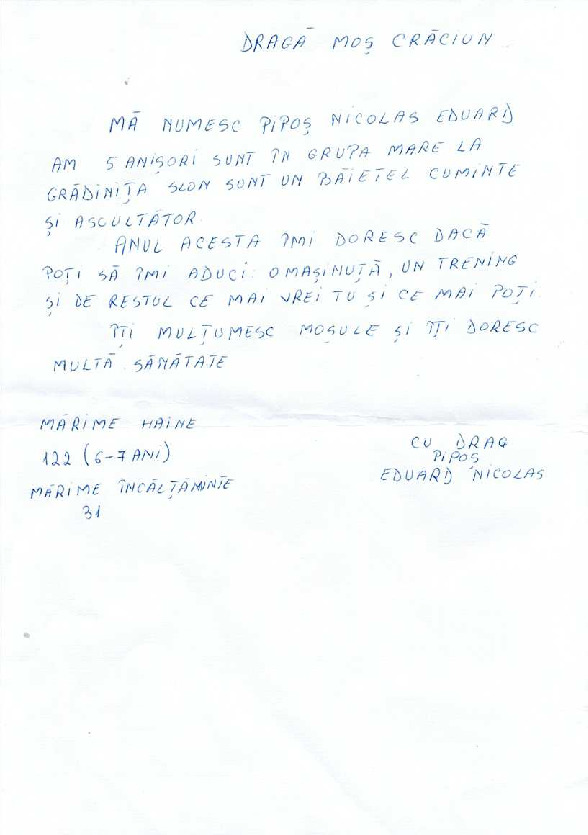 DRAGĂ MOȘ CRĂCIUN
MĂ NUMESC PIPOȘ NICOLAS EDUARD
AM 5 ANIȘORI SUNT ÎN GRUPA MARE LA
GRĂDINIȚA SLON SUNT UN BĂIEȚEL CUMINTE
ȘI ASCULTĂTOR.
ANUL ACESTA ÎMI DORESC DACĂ
POȚI SĂ ÎMI ADUCI: O MAȘINUȚĂ, UN TRENING
ȘI DE RESTUL CE MAI VREI TU ȘI CE MAI POȚI
ÎȚI MULȚUMESC MOȘULE ȘI ÎȚI DORESC
MULTĂ SĂNĂTATE
MĂRIME HAINE
122 (6-7 ANI)
MĂRIME ÎNCĂLȚĂMINTE
31
CU DRAG
PIPOȘ
EDUARD NICOLAS